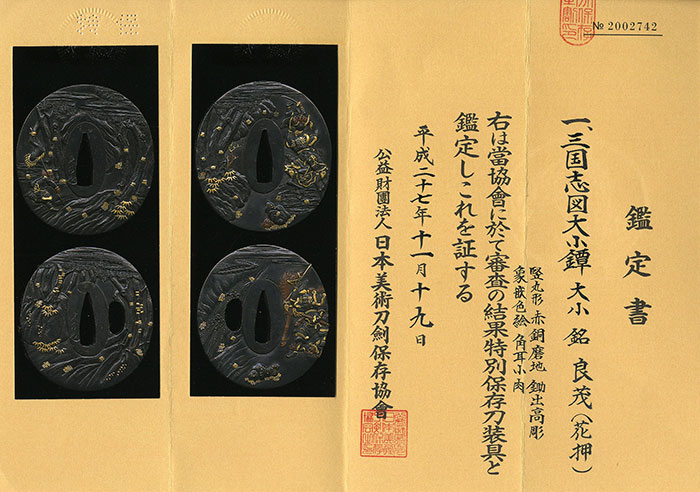 № 2002742
鑑定書
一、三国志図大小鐔 大小 銘 良茂(花押)
竪丸形 赤銅磨地 鋤出高彫
象嵌色絵 角耳小肉
右は當協會に於て審査の結果特別保存刀装具と
鑑定しこれを証する
平成二十七年十一月十九日
公益財團法人 日本美術刀劍保存協會